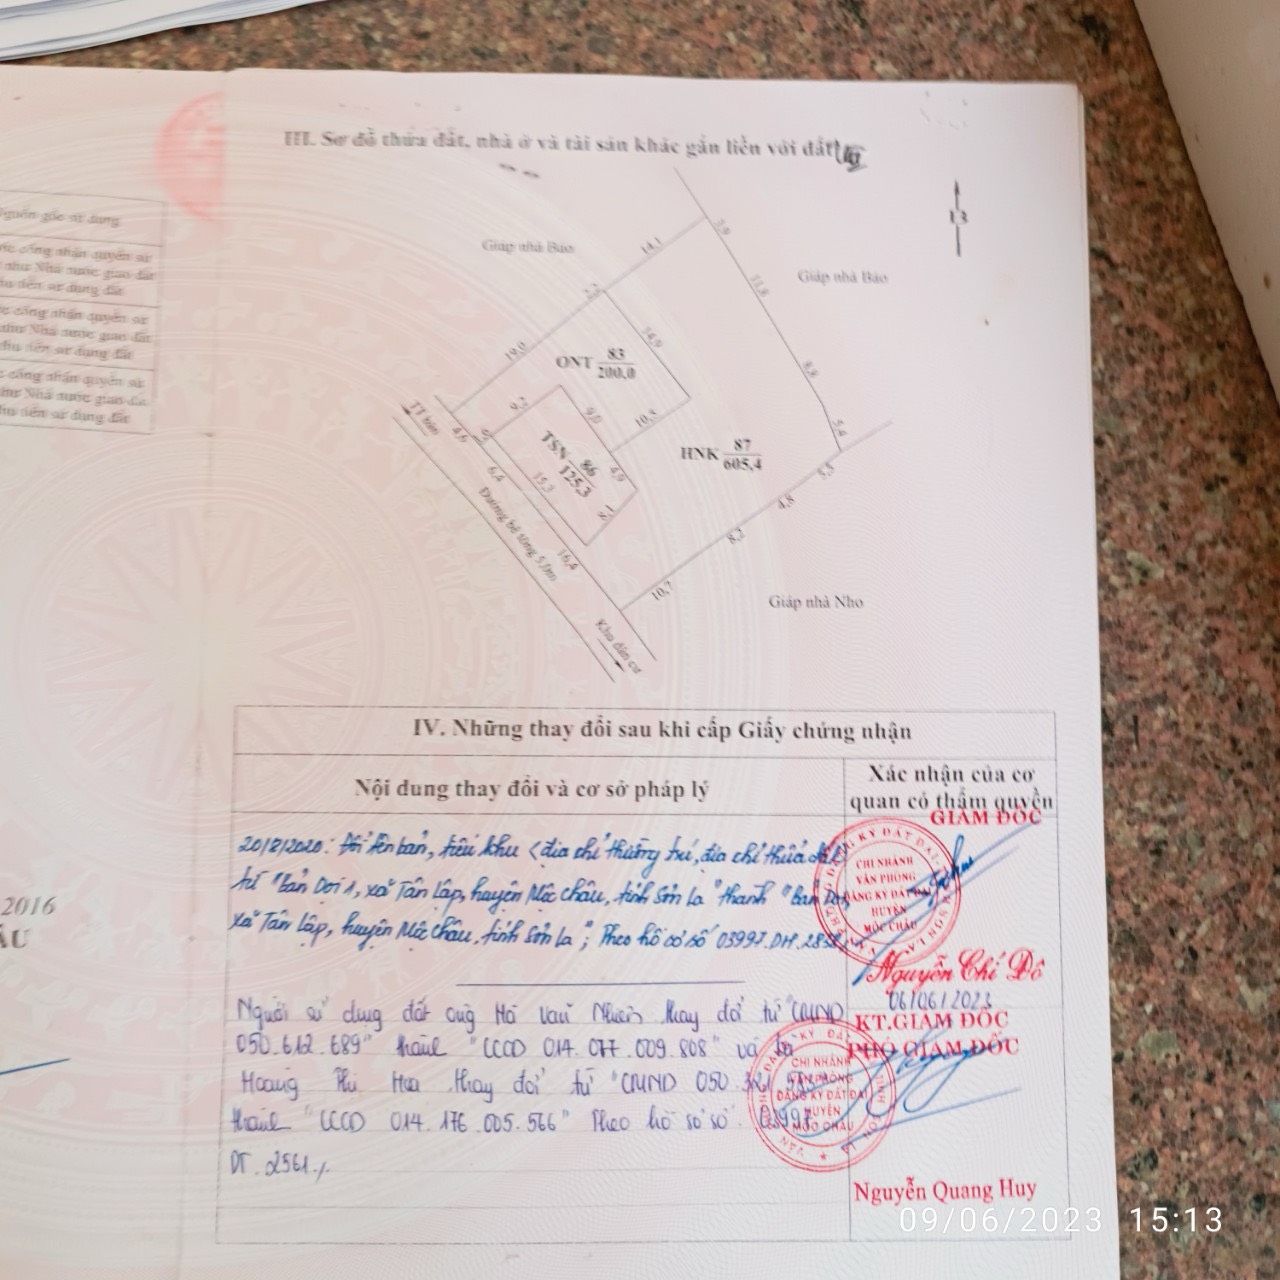 III. Sơ đồ thửa đất, nhà ở và tài sản khác gắn liền với đất
Nguồn gốc sử dụng
công nhận quyền sử
như Nhà nước giao đất
thu tiền sử dụng đất
công nhận quyền sử
như Nhà nước giao đất
thu tiền sử dụng đất
công nhận quyền sử
như Nhà nước giao đất
thu tiền sử dụng đất
2016
ÂU
Giáp nhà Báo
14,1
3,9
Giáp nhà Báo
11,8
2,2
19,0
14,9
ONT 83
200,0
8,8
9,2
9,0
10,3
5,4
TT bản
4,6
TSN 86
125,3
4,9
HNK 87
605,4
5,5
6,4
15,3
4,8
Đường bê tông 5,0m
16,4
8,2
10,7
Giáp nhà Nho
Khu dân cư
IV. Những thay đổi sau khi cấp Giấy chứng nhận
Nội dung thay đổi và cơ sở pháp lý
Xác nhận của cơ
quan có thẩm quyền
20/8/2020: Đổi tên bản, tiểu khu (địa chỉ thường trú, địa chỉ thửa đất)
từ "Bản Dọi 1, xã Tân Lập, huyện Mộc Châu, tỉnh Sơn La" thành "Bản Dọi,
xã Tân Lập, huyện Mộc Châu, tỉnh Sơn La"; Theo hồ sơ số 03997.DH.
GIÁM ĐỐC
CHI NHÁNH
VĂN PHÒNG
ĐĂNG KÝ ĐẤT ĐAI
HUYỆN
MỘC CHÂU
Nguyễn Chí Đô
Người sử dụng đất ông Hà Văn thay đổi từ "CMND
050.612.689" thành "CCCD 014.077.009.808" và bà
Hoàng Thị Hoa thay đổi từ "CMND 050
thành "CCCD 014.176.005.566" Theo hồ sơ số 03997
DT.2561./.
06/06/2023
KT.GIÁM ĐỐC
PHÓ GIÁM ĐỐC
CHI NHÁNH
VĂN PHÒNG
ĐĂNG KÝ ĐẤT ĐAI
HUYỆN
MỘC CHÂU
Nguyễn Quang Huy
09/06/2023 15:13